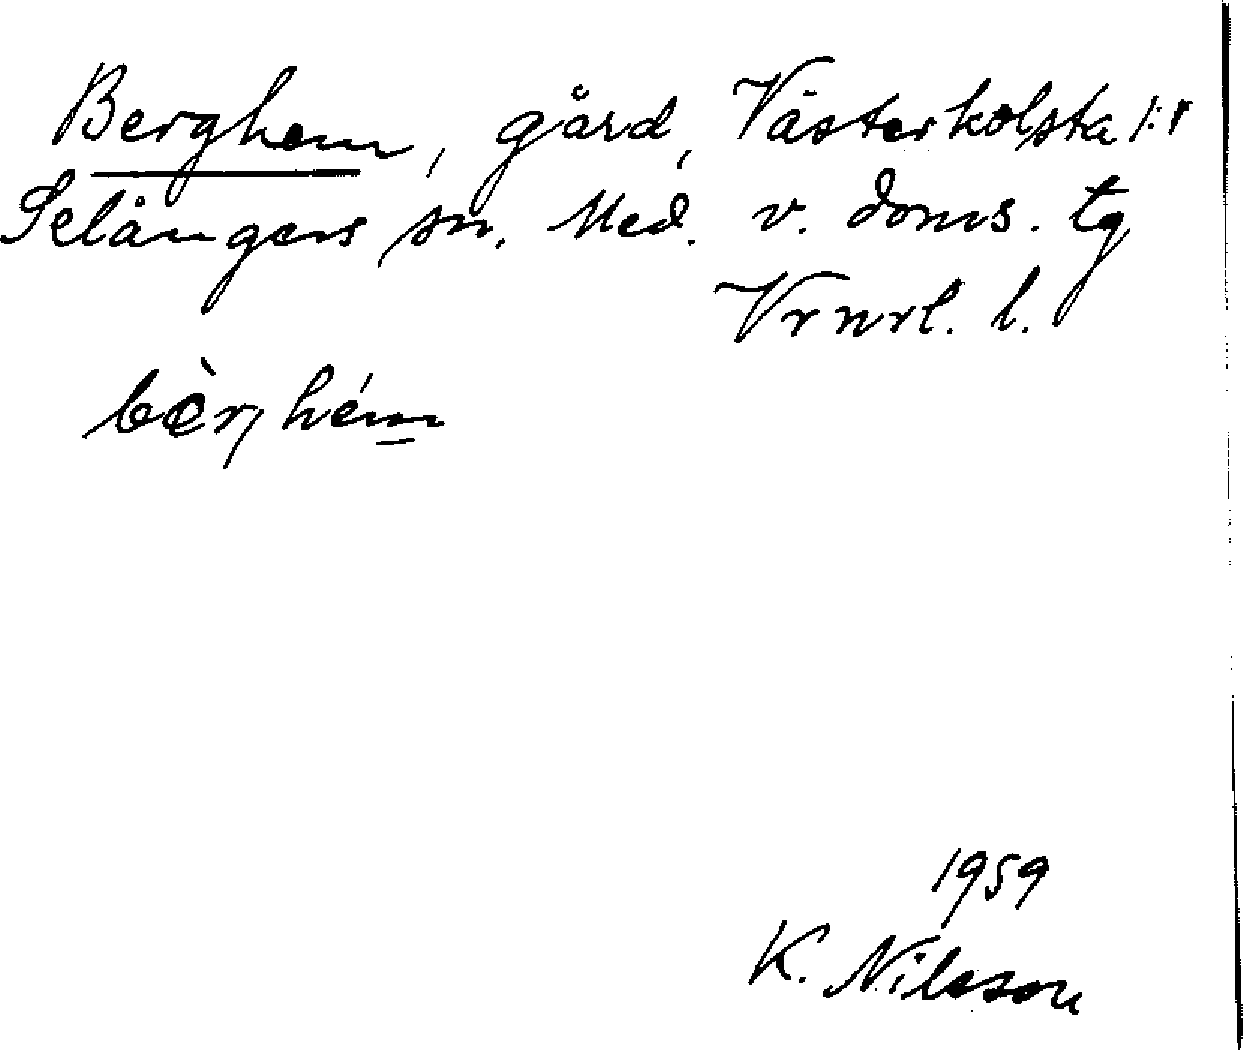 Berghem, gård, Västerkolsta 1:1
Selångers sn. Med. v. doms. tg
Vrnrl. l.
bèrhém
1959
K. Nilsson